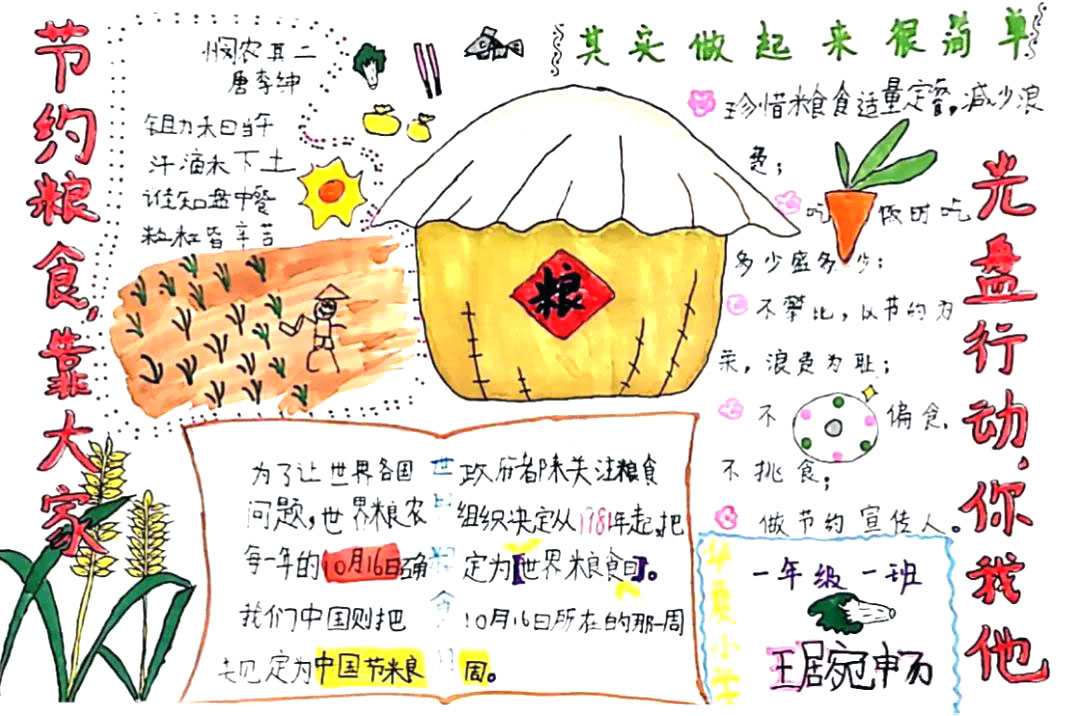 节约粮食,靠大家
悯农其二
唐李绅
锄禾日当午
汗滴禾下土
谁知盘中餐
粒粒皆辛苦
粮
其实做起来很简单
珍惜粮食适量定餐,减少浪
费;
吃 饭时吃
多少盛多少;
不攀比,以节约为
荣,浪费为耻;
不 偏食,
不挑食;
做节约宣传人。
光盘行动,你我他
世界粮食日
为了让世界各国政府都来关注粮食
问题,世界粮农组织决定从1981年起,把
每一年的10月16日确定为【世界粮食日】。
我们中国则把10月16日所在的那一周
定为中国节粮周。
华夏小学
一年级一班